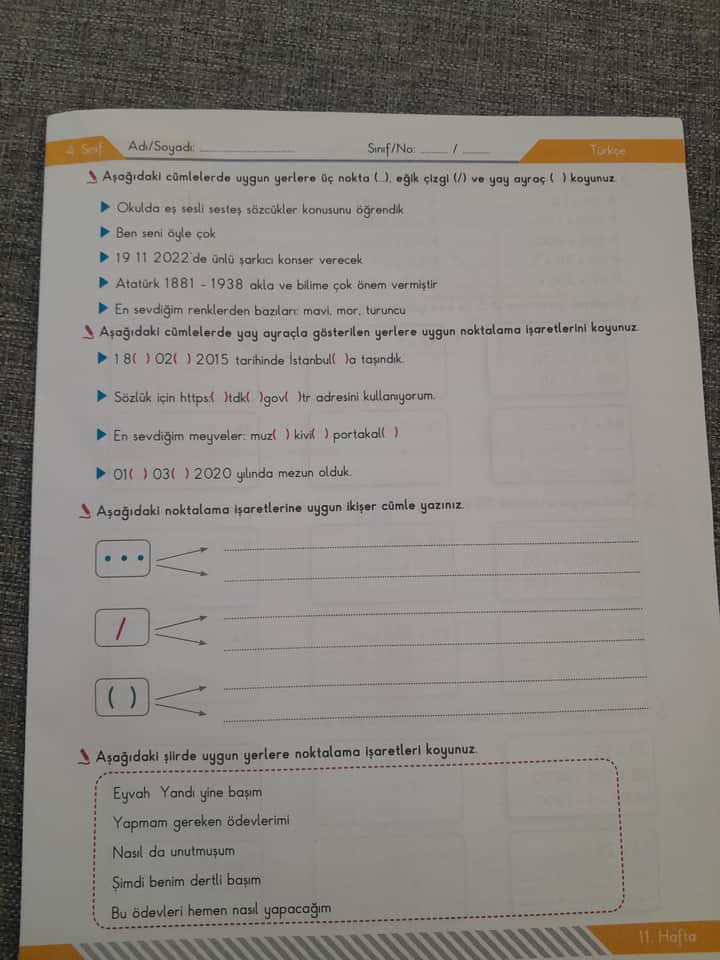 4. Sınıf Adı/Soyadı: ........................ Sınıf/No: ........ / ........ Türkçe
Aşağıdaki cümlelerde uygun yerlere üç nokta (...), eğik çizgi (/) ve yay ayraç ( ) koyunuz.
Okulda eş sesli sesteş sözcükler konusunu öğrendik
Ben seni öyle çok
19 11 2022'de ünlü şarkıcı konser verecek
Atatürk 1881 - 1938 akla ve bilime çok önem vermiştir
En sevdiğim renklerden bazıları: mavi, mor, turuncu
Aşağıdaki cümlelerde yay ayraçla gösterilen yerlere uygun noktalama işaretlerini koyunuz.
18( ) 02( ) 2015 tarihinde İstanbul( )a taşındık.
Sözlük için https:( )tdk( )gov( )tr adresini kullanıyorum.
En sevdiğim meyveler: muz( ) kivi( ) portakal( )
01( ) 03( ) 2020 yılında mezun olduk.
Aşağıdaki noktalama işaretlerine uygun ikişer cümle yazınız.
...
/
( )
Aşağıdaki şiirde uygun yerlere noktalama işaretleri koyunuz.
Eyvah Yandı yine başım
Yapmam gereken ödevlerimi
Nasıl da unutmuşum
Şimdi benim dertli başım
Bu ödevleri hemen nasıl yapacağım
11. Hafta